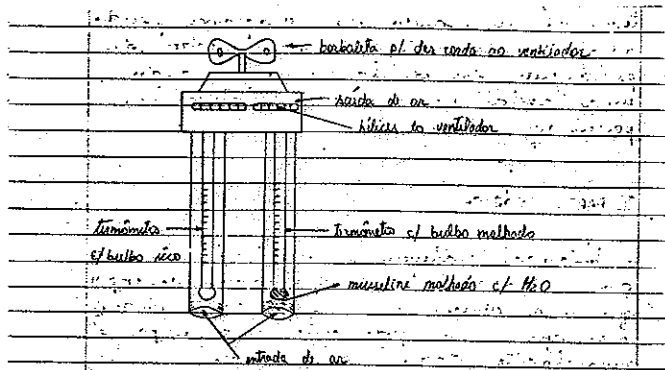 borboleta p/ der corda no ventilador
saída de ar
hélices do ventilador
termômetro
c/ bulbo sêco
termômetro c/ bulbo molhado
musseline molhado c/ H2O
entrada de ar